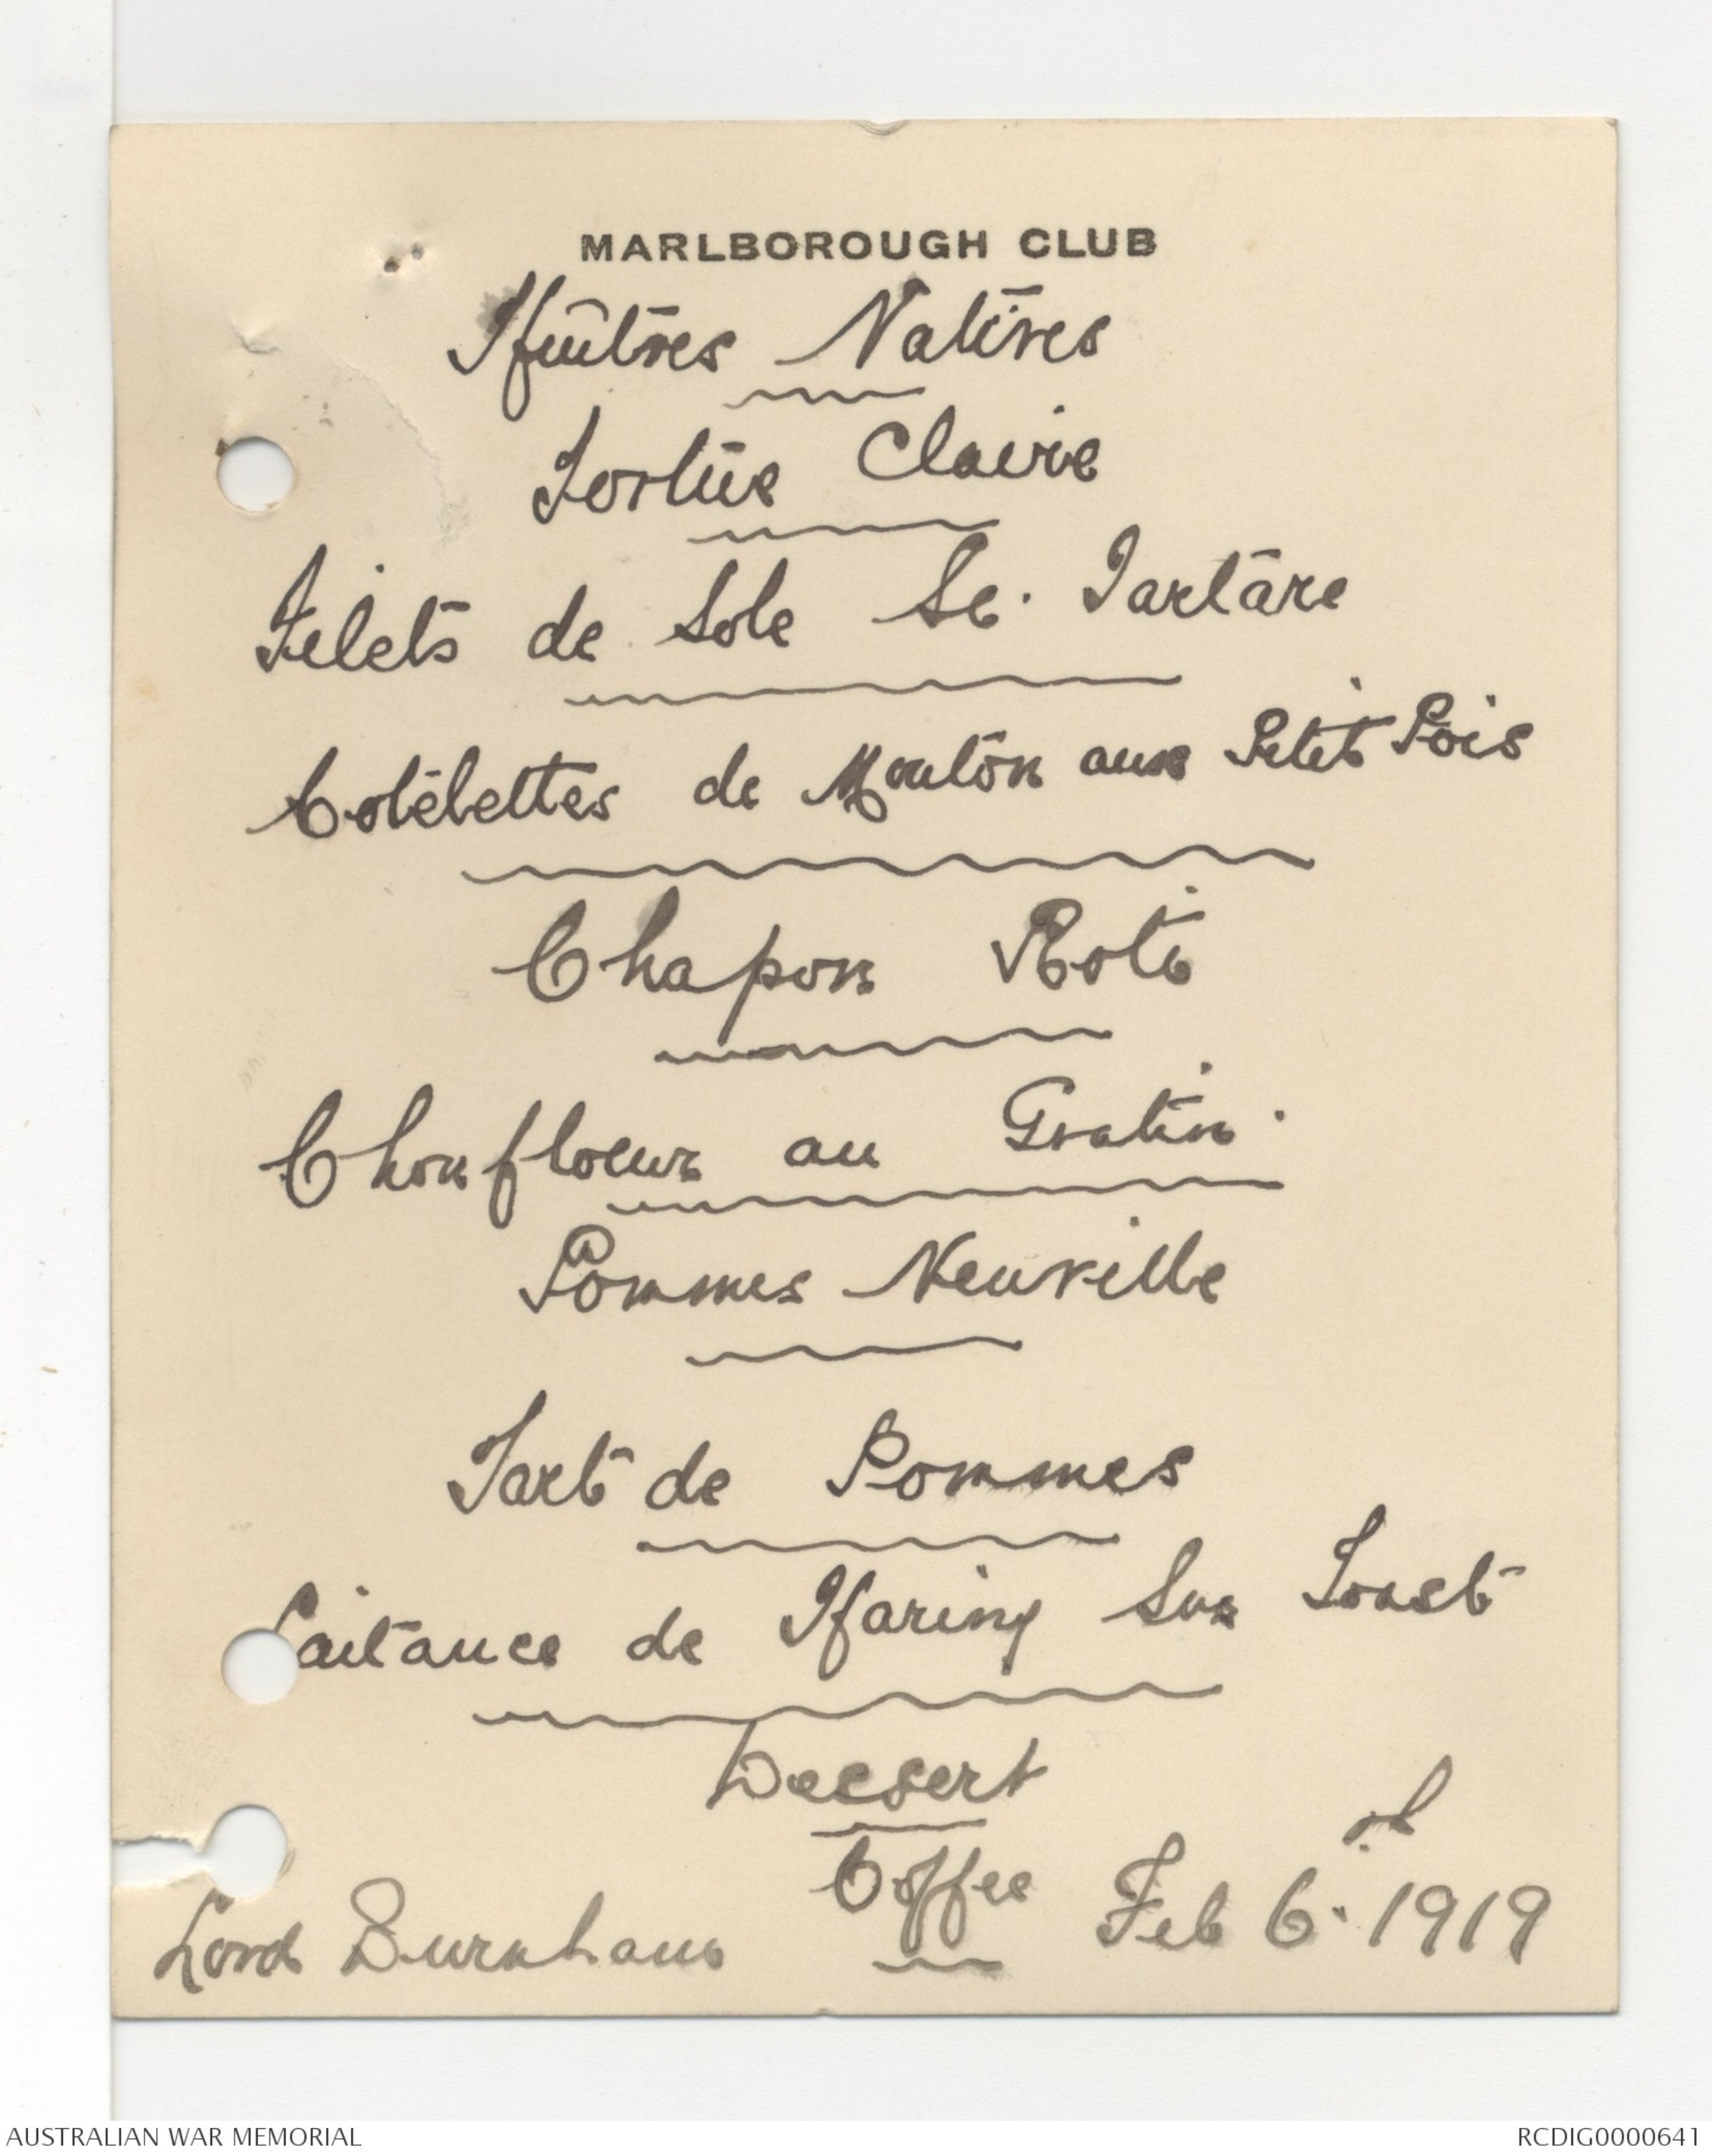 MARLBOROUGH CLUB
Huîtres Natives
Tortue Claire
Filets de Sole Sc. Tartare
Cotelettes de Mouton aux Petit Pois
Chapon Roti
Choufloeur au Gratin.
Pommes Neuville
Tart de Pommes
Laitance de Haring Sur Toast
Dessert
Coffee
Lord Burnham Feb 6th. 1919
AUSTRALIAN WAR MEMORIAL RCDIG0000641